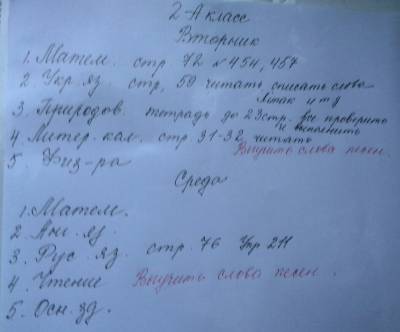 2-А класс
Вторник
1. Матем. стр 72 №454, 457
2 Укр яз. стр, 59 читать, списать слова
и т д
3. Природов. тетрадь до 23стр. все проверить
и выполнить
4. Литер. кал. стр 31-32 читать
Выучить слова песен.
5. Физ-ра
Среда
1. Матем.
2. Анг. яз.
3. Рус. яз. стр. 76 Упр 211
4 Чтение Выучить слова песен.
5. Осн. зд.